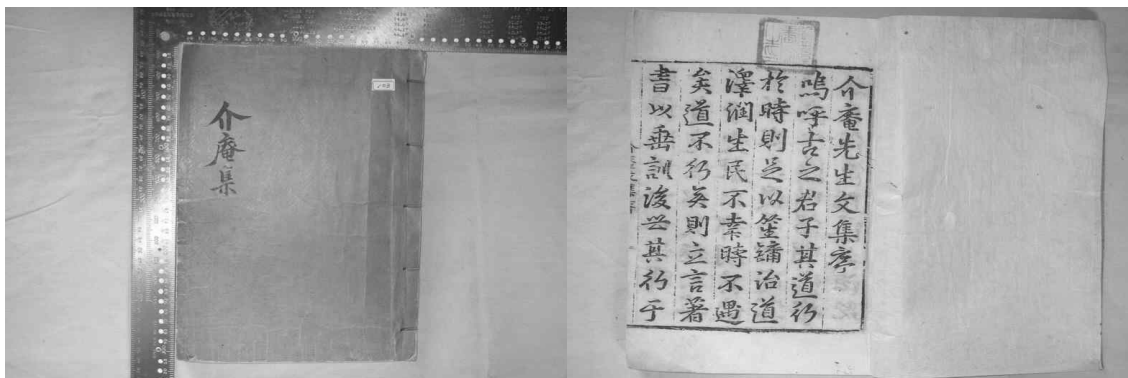 介庵集
介庵先生文集序
嗚呼古之君子其道行
於時則足以笙鏞治道
澤潤生民不幸時不遇
矣道不行矣則立言著
書以垂訓後世其行于